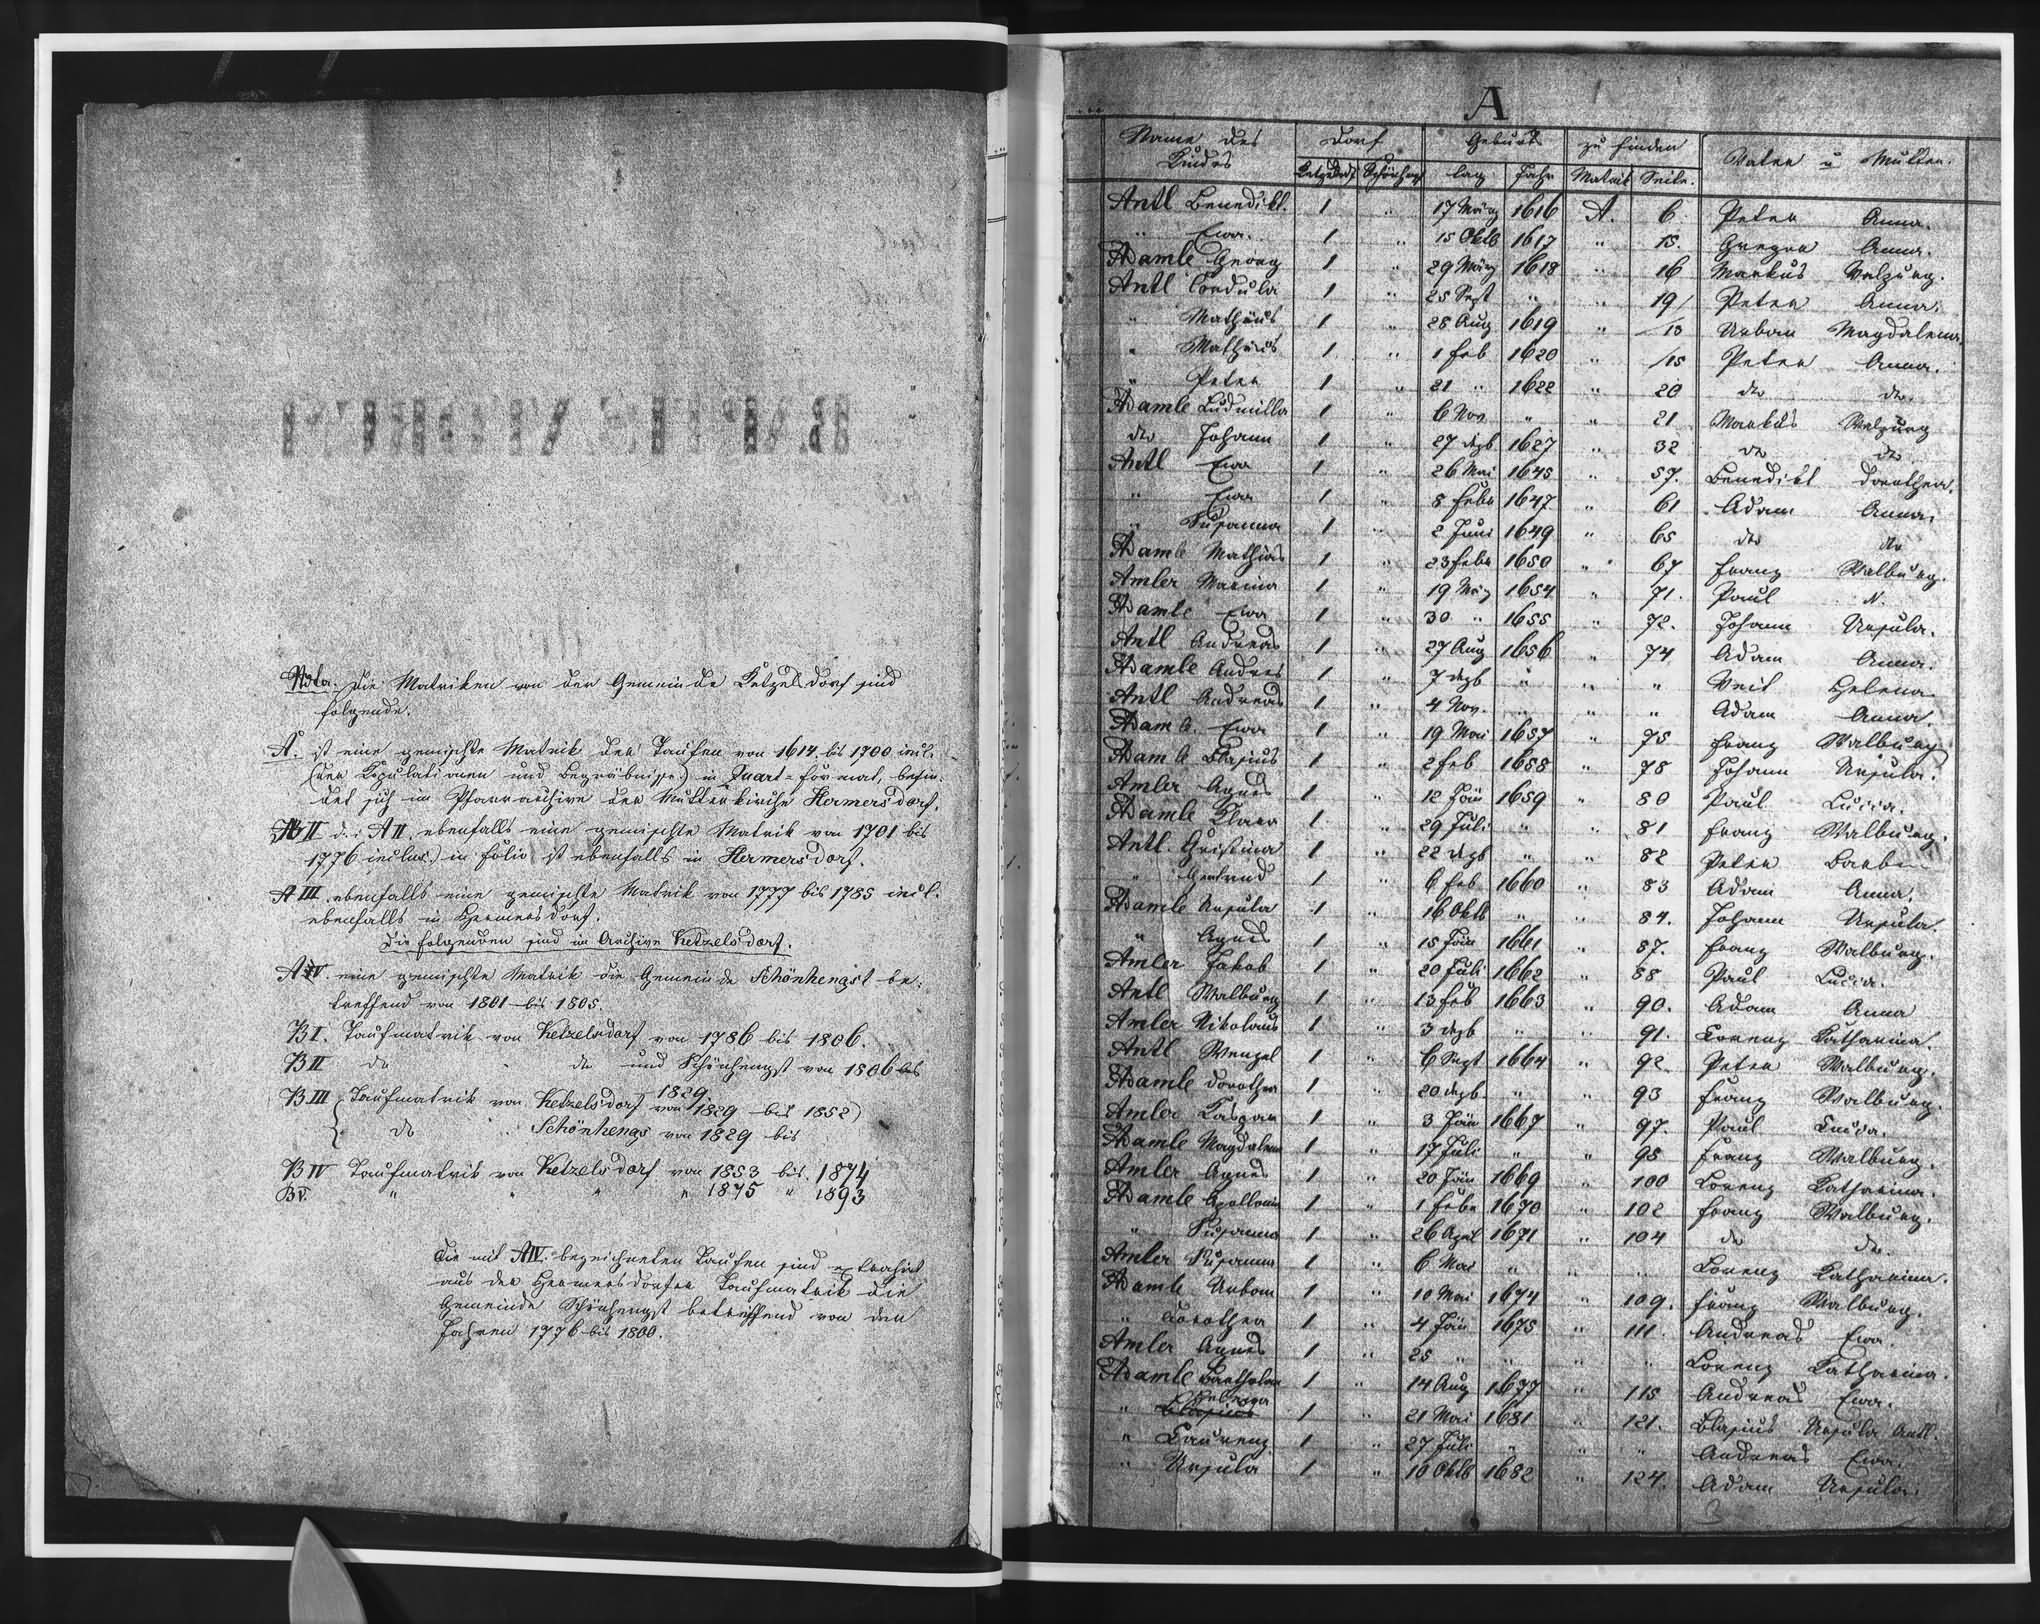 Nota. Die Matriken von der Gemeinde Ketzelsdorf sind
folgende.
A. ist eine gemischte Matrik der Taufen von 1614 bis 1700 incl.
(der Kopulationen und Begräbnisse) in Quart=format, befin-
det sich im Pfarrarchive der Mutterkirche Hermersdorf.
A II ebenfalls eine gemischte Matrik von 1701 bis
1776 inclus.) in folio ist ebenfalls in Hermersdorf.
A III. ebenfalls eine gemischte Matrik von 1777 bis 1785 incl.
ebenfalls in Hermersdorf.
Die folgenden sind im Archive Ketzelsdorf.
A IV. eine gemischte Matrik die Gemeinde Schönhengst be-
treffend von 1801 bis 1805.
B I. Taufmatrik von Ketzelsdorf von 1786 bis 1806.
B II do do und Schönhengst von 1806 bis
1829.
B III Taufmatrik von Ketzelsdorf von 1829 bis 1852)
do " Schönhengs von 1829 bis
B IV Taufmatrik von Ketzelsdorf von 1853 bis 1874
B V. " " " " 1875 " 1893
Die mit A IV. bezeichneten Taufen sind extrahirt
aus der Hermersdorfer Taufmatrik die
Gemeinde Schönhengst betreffend von den
Jahren 1776 bis 1800.
A
Name des Kindes Dorf Geburts zu finden Vater u Mutter.
Ketzelsdf Schönhengst tag Jahr Matrik Seite.
Antl Benedikt. 1 " 17 März 1616 A. 6. Peter Anna.
" Ewa. 1 " 15 Oktb 1617 " 15. Gregor Anna.
Adamle Georg 1 " 29 März 1618 " 16 Markus Walpurg.
Antl Cordula 1 " 25 Sept " " 19 Peter Anna.
" Mathäus 1 " 28 Aug 1619 " 13 Urban Magdalena.
" Mathäus 1 " 1 Feb 1620 " 15 Peter Anna.
" Peter 1 " 21 " 1622 " 20 do do.
Adamle Ludmilla 1 " 6 Nov " " 21 Markus Walpurg
do Johann 1 " 27 dezb 1627 " 32 do do
Antl Ewa 1 " 26 Mai 1645 " 57. Benedikt Dorothea.
" Ewa 1 " 8 Febr 1647 " 61 Adam Anna.
" Susanna 1 " 2 Juni 1649 " 65 do do
Adamle Mathias 1 " 23 Febr 1650 " 67 Franz Walburg.
Amler Marina 1 " 19 März 1654 " 71. Paul N.
Adamle Ewa 1 " 30 " 1655 " 72. Johann Ursula.
Antl Andreas 1 " 27 Aug 1656 " 74 Adam Anna.
Adamle Andreas 1 " 7 dezb " " " Veit Helena
Antl Andreas 1 " 4 Nov. " " " Adam Anna.
Adamle. Ewa 1 " 19 Mai 1657 " 75 Franz Walburg
Adamle Blasius 1 " 2 Feb 1658 " 78 Johann Ursula.
Amler Agnes 1 " 12 Jän 1659 " 80 Paul Lucia.
Adamle Klara 1 " 29 Juli " " 81 Franz Walburg.
Antl. Christina 1 " 22 dezb " " 82 Peter Barb
" Gertrud 1 " 6 Feb 1660 " 83 Adam Anna.
Adamle Ursula 1 " 16 Oktb " " 84. Johann Ursula.
" Agnes 1 " 15 Jän 1661 " 87. Franz Walburg.
Amler Jakob 1 " 20 Juli 1662 " 88 Paul Lucia.
Antl Walburg 1 " 13 Feb 1663 " 90. Adam Anna
Amler Nikolaus 1 " 3 dezb " " 91. Lorenz Katharina.
Antl Wenzel 1 " 6 Sept 1664 " 92 Peter Walburg.
Adamle Dorothea 1 " 20 dezb " " 93 Franz Walburg.
Amler Kaspar 1 " 3 Jän 1667 " 97. Paul Lucia.
Adamle Magdalena 1 " 17 Juli " " 98 Franz Walburg.
Amler Agnes 1 " 20 Jän 1669 " 100 Lorenz Katharina.
Adamle Apollonia 1 " 1 Febr 1670 " 102 Franz Walburg.
" Susanna 1 " 26 April 1671 " 104 do do.
Amler Susanna 1 " 6 Mai " " " Lorenz Katharina.
Adamle Urban 1 " 10 Mai 1674 " 109. Franz Walburg.
" Dorothea 1 " 4 Jän 1675 " 111. Andreas Ewa.
Amler Agnes 1 " 25 " " " " Lorenz Katharina.
Adamle Bartholom 1 " 14 Aug 1677 " 115 Andreas Ewa.
" Blasius 1 " 21 Mai 1681 " 121. Blasius Ursula Antl.
" Laurenz 1 " 27 Juli " " " Andreas Ewa.
" Ursula 1 " 10 Oktb 1682 " 124. Adam Ursula.
3